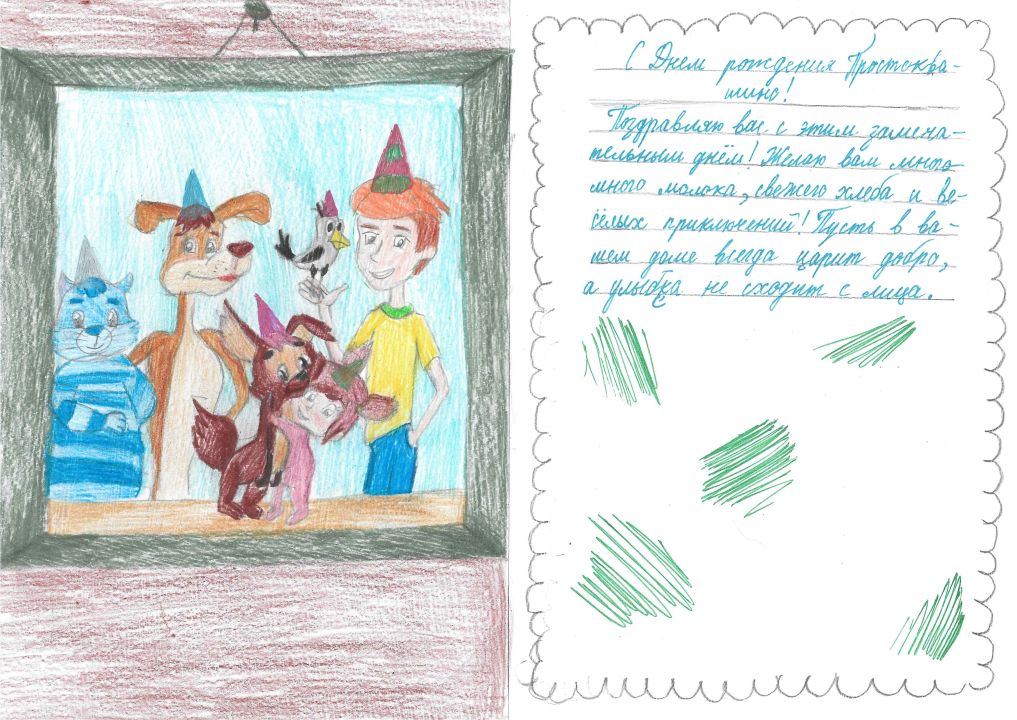 С Днем рождения Простоква-
шино!
Поздравляю вас с этим замеча-
тельным днём! Желаю вам много
много молока, свежего хлеба и ве-
сёлых приключений! Пусть в ва-
шем доме всегда царит добро,
а улыбка не сходит с лица.